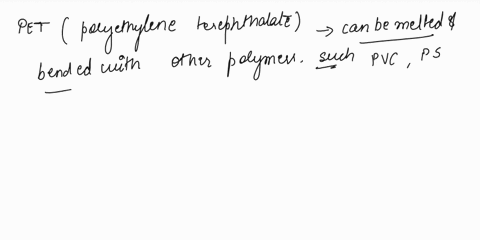 PET (polyemylene terephthalate) → can be melted &
bended with other polymers. such PVC, PS